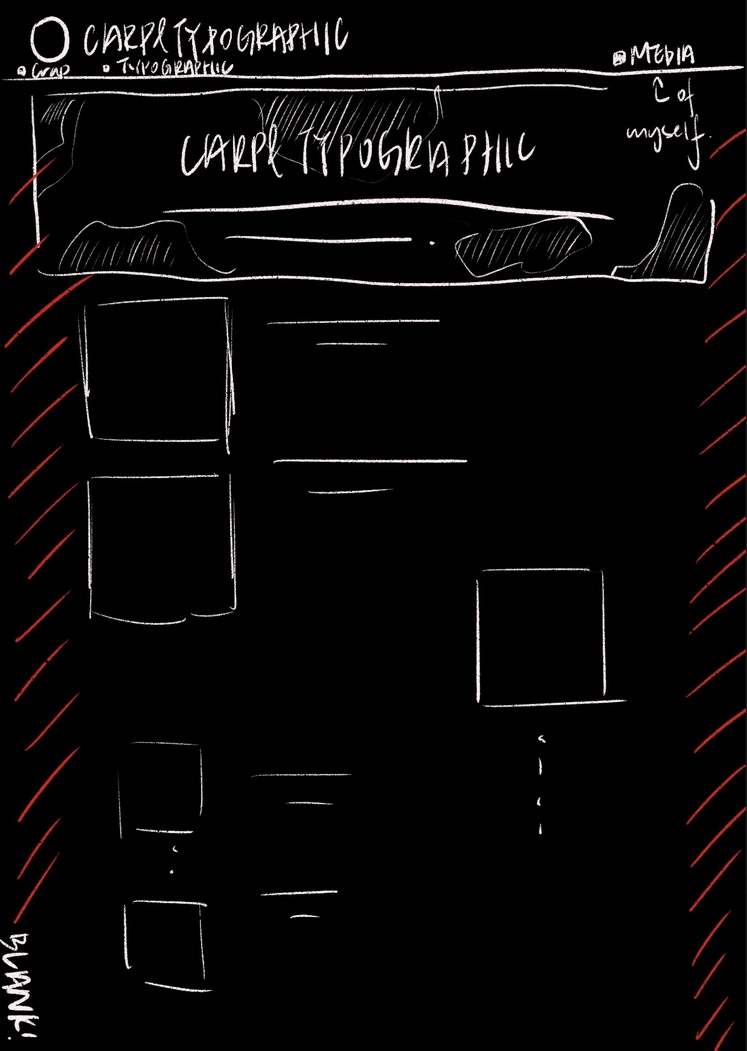 CARPE TYPOGRAPHIC
TYPOGRAPHIC
MEDIA
of
myself.
CARPE TYPOGRAPHIC
BLANK!